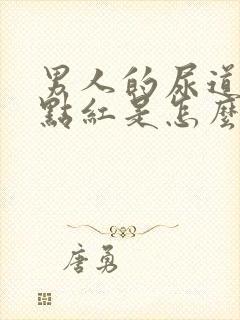 男人的尿道
點紅是怎麼
唐勇